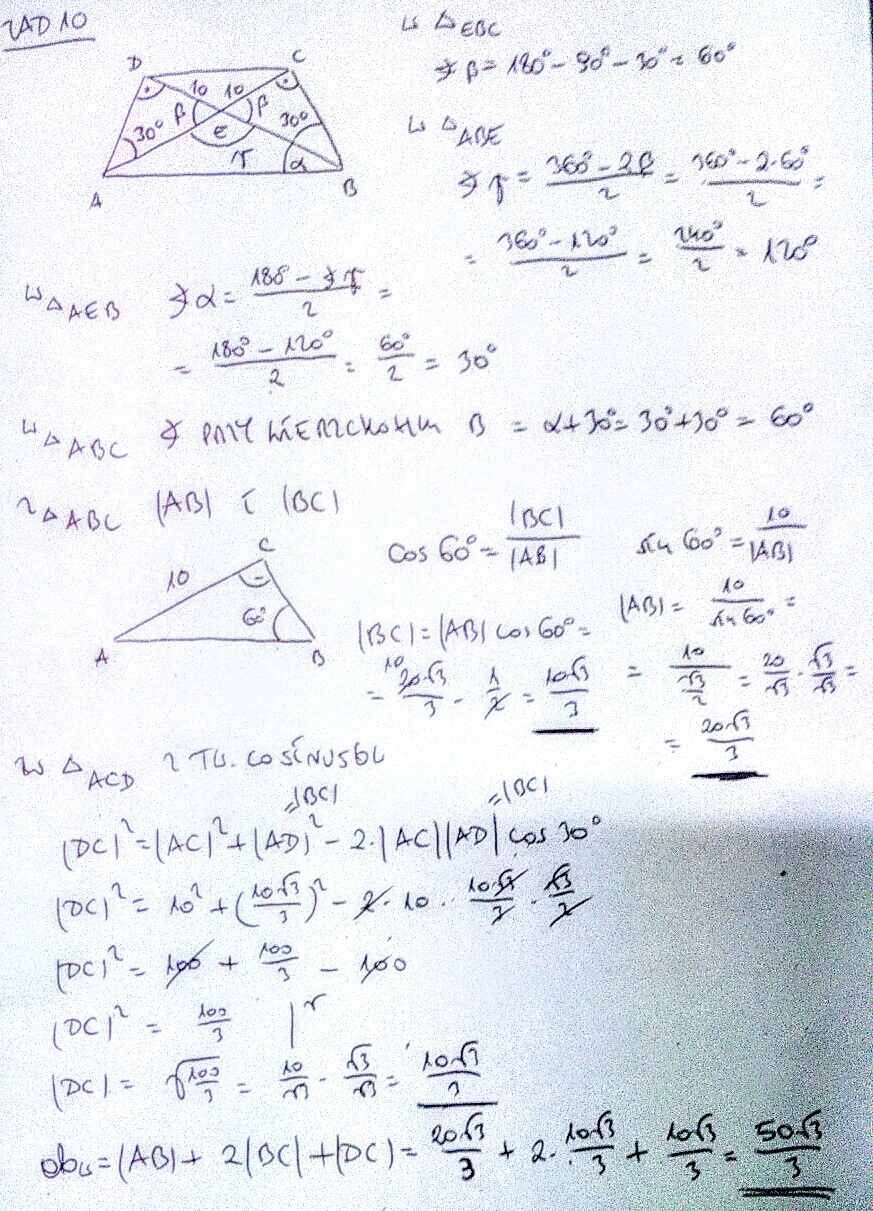 ZAD 10
D C
10 10
30° β β 30°
E
γ α
A B
W △EBC
∡β = 180° - 90° - 30° = 60°
W △ABE
∡γ = (360° - 2β)/2 = (360° - 2·60°)/2 =
= (360° - 120°)/2 = 240°/2 = 120°
W △AEB ∡α = (180° - ∡γ)/2 =
= (180° - 120°)/2 = 60°/2 = 30°
W △ABC ∡ PRZY WIERZCHOŁKU B = α+30° = 30°+30° = 60°
Z △ABC |AB| I |BC|
C
10
60°
A B
cos 60° = |BC|/|AB|
|BC| = |AB| cos 60° =
= 20√3/3 · 1/2 = 10√3/3
10
sin 60° = 10/|AB|
|AB| = 10/sin 60° =
= 10/(√3/2) = 20/√3 · √3/√3 =
= 20√3/3
W △ACD Z TW. COSINUSÓW
=|BC| =|BC|
|DC|² = |AC|² + |AD|² - 2·|AC||AD| cos 30°
|DC|² = 10² + (10√3/3)² - 2·10·10√3/3·√3/2
|DC|² = 100 + 100/3 - 100
|DC|² = 100/3 |√
|DC| = √(100/3) = 10/√3 · √3/√3 = 10√3/3
obw = |AB| + 2|BC| + |DC| = 20√3/3 + 2·10√3/3 + 10√3/3 = 50√3/3